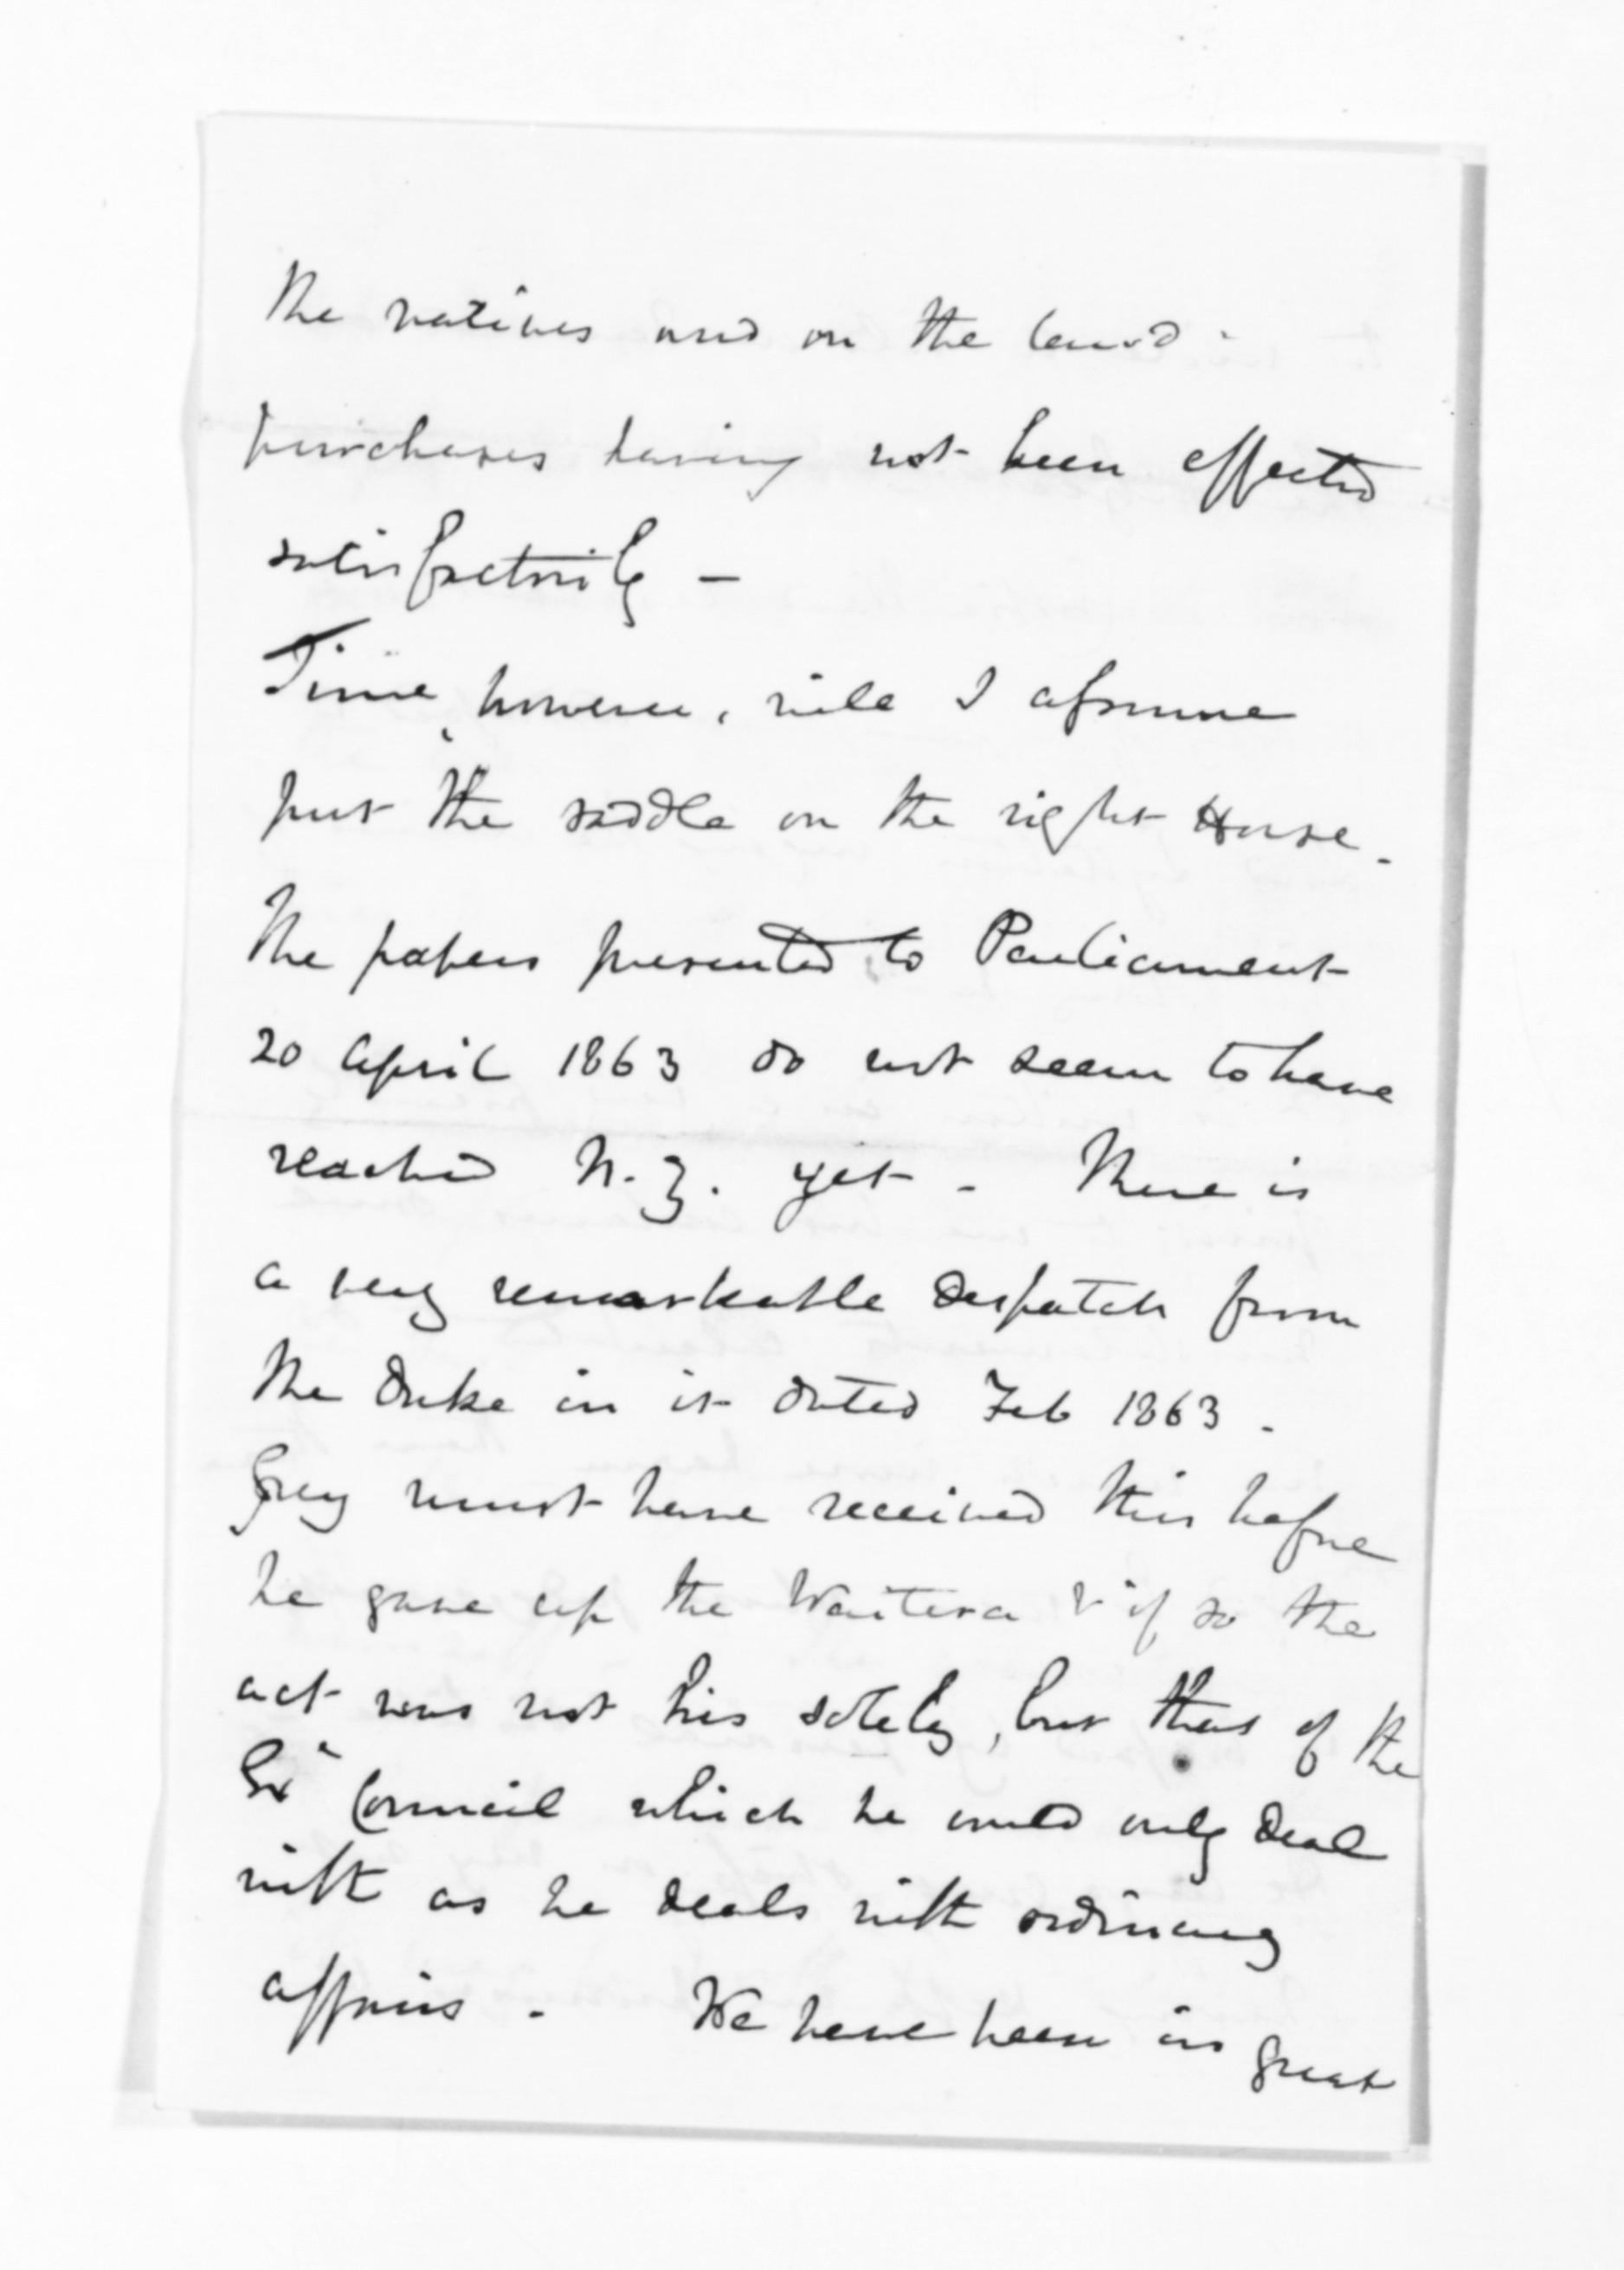 the natives and on the land -
purchases having not been effected
satisfactorily -
Time, however, will I assume
put the saddle on the right Horse.
The papers presented to Parliament
20 April 1863 do not seem to have
reached N.Z. yet - There is
a very remarkable despatch from
the Duke in it dated Feb 1863.
Grey must have received this before
he gave up the Waitera & if so the
act was not his solely, but that of the
Ex Council which he could only deal
with as he deals with ordinary
affairs. We have been in great